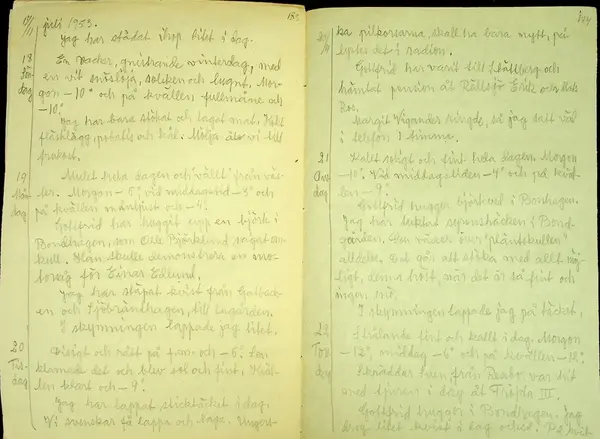 juli 1953.
Jag har städat ihop litet i dag.
18
Sön
dag
En vacker, gnistrande vinterdag, med
en vit snöslöja, solsken och lugnt. Mor-
gon -10° och på kvällen fullmåne och
-10°
Jag har bara stökat och lagat mat. Kokt
fläsklägg, potatis och kål. Mölja äto vi till
frukost.
19
Mån
dag
Mulet hela dagen och vällt från väs-
ter. Morgon -8°, vid middagstid -3° och
på kvällen månljust och -4°.
Gottfrid har huggit upp en björk i
Bondhagen, som Olle Björklund sågat om-
kull. Han skulle demonstrera en mo-
torsåg för Einar Edlund.
Jag har släpat kvist från
en och Sjöbrändhagen, till lagården.
I skymningen lappade jag litet.
20
Tis-
dag
Disigt och rått på f.m. och -6°. Sen
klarnade det och blev sol och fint. Kväl-
len klart och -9°.
Jag har lappat sticktäcket i dag.
Vi svenskar få lappa och laga.
183.
184
20/
ka pilkortarna, skall ha bara nytt, på
lystes det i radion.
Gottfrid har varit till och
hämtat pension åt Erik och Mats
Bos.
Margit Vigander ringde, så jag satt väl
i telefon 1 timma.
21
Ons
dag
Kallt soligt och fint hela dagen. Morgon
-10°. Vid middagstiden -4° och på kväl-
len -9°.
Gottfrid hugger björkved i Bonhagen.
Jag har tuktat syrenshäcken i Bond-
gården. Den växer över "plantskullen"
alldeles. Det går att stöka med allt möj-
ligt, denna höst, när det är så fint och
ingen snö.
I skymningen lappade jag på täcket.
22
Tors
dag
Strålande fint och kallt i dag. Morgon
-12°, middag -6° och på kvällen -12°.
Skräddar Sven från var hit
med tjuren i dag åt Tripla III.
Gottfrid hugger i Bondhagen. Jag
drog litet kvist i dag också.